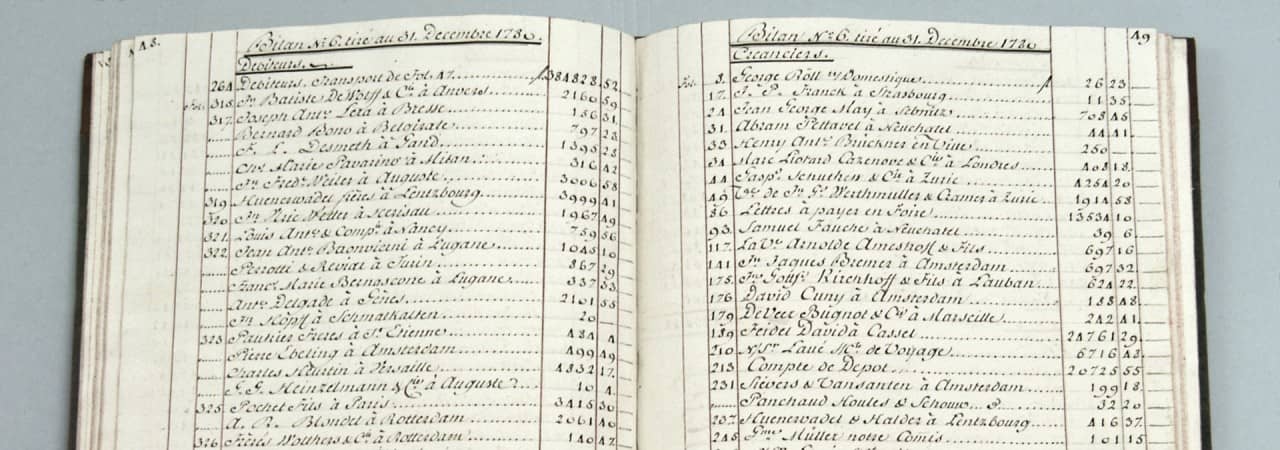 48.
Bilan N.º 6. tiré au 31. Decembre 178
Debiteurs.
264 Debiteurs, Transport de Fol. 47. 384828 52
Fol. 318. Jn Batiste De Wolff & Cie à Anvers 2160 59
317. Joseph Ant.º Lera à Bresse 156 31
Bernard Bono à Belgirate 797 28
F. L. Desmeth à Gand 1395 28
Marie Pavarino à Milan 316 42
Jn Fred.c Neiler à Auguste 3006 58
319 Huenerwadel frères à Lentzbourg 3999 41
320 Jn Wetter à Herisau 1967 49
321. Louis Ant.e & Comp.e à Nancy 759 56
322. Jean Ant.e Bacinvicini à Lugane 1045 10
Perrotti & à Turin 867 29
Franc.s Marie Bernascone à Lugane 337 33
Ant.e Delgade à Gênes 2101 55
Jn Höpff à Schmalkalten 20
323 Paunier Freres à St Etienne 484 4
Pierre Ebeling à Amsterdam 499 49
Charles Maurin à Versaille 4832 17.
G. G. Heinzelmann & Cie à Auguste 10 4
325. Pochet Fils à Paris 3415 30
A. R. Blondel à Rotterdam 2061 40
326 Frères Wolthers & C.e à Rotterdam 140 42
49
Bilan N.º 6. tiré au 31. Decembre 178
Creanciers.
Fol. 3. George Röll Domestique 26 23
17. J. P. Franck à Strasbourg 11 35
24 Jean George May à 708 45
31. Abram Pettavel à Neuchatel 44 41
33 Henry Ant.e Bruckner en Ville 250
34 Marc Liotard Cazenove & C.ie à Londres 408 18
44 Gasp.e Schuthen & Cie à Zuric 4254 20
49 de Jn G.e Werthmuller & Cramer à Zuric 1914 58
86. Lettres à payer en Foire 13534 10
93. Samuel Fauche à Neuchatel 39 6
117. La V.e Arnolde Ameshoff & Fils 697 16
141 Jn Jaques Bremer à Amsterdam 697 32
175. Jn Gottf. Kirchhoff & Fils à Lauban 624 22
176 David Cuny à Amsterdam 188 48
179 De Veer Bugnot & C.e à Marseille 242 41
189 Feidel David à Cassel 24761 29
210. N. Sr Laué M.se de Voyage 6716 43
213 Compte de Depot 20725 55
231 Sievers & Vansanten à Amsterdam 199 18
Panchaud Houles & Schouw 32 20
237. Huenerwadel & Halder à Lentzbourg 416 37
245 Müller notre Comis 101 15